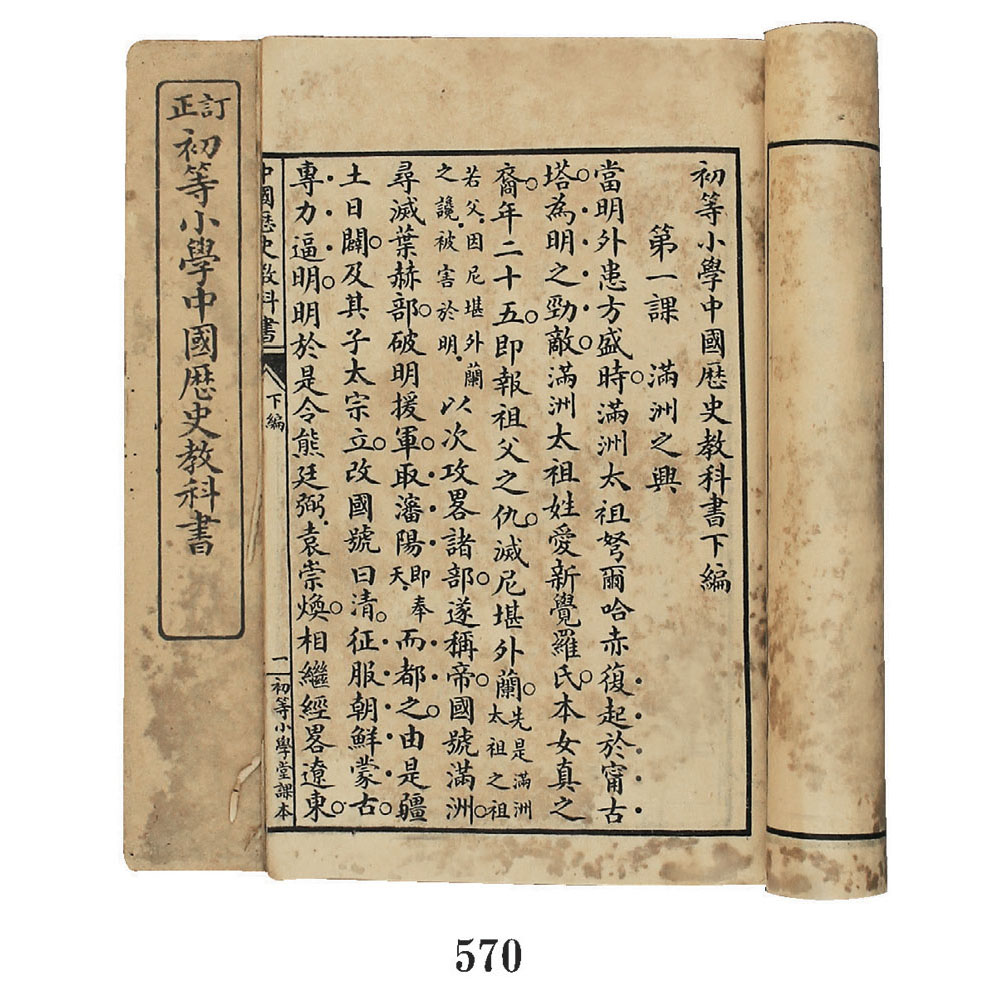 訂正
初等小學中國歷史教科書
初等小學中國歷史教科書下編
第一課　滿洲之興
當明外患方盛時滿洲太祖弩爾哈赤復起於甯古
塔為明之勁敵滿洲太祖姓愛新覺羅氏本女真之
裔年二十五即報祖父之仇滅尼堪外蘭先是滿洲太祖之祖
若父因尼堪外蘭之讒被害於明以次攻畧諸部遂稱帝國號滿洲
尋滅葉赫部破明援軍取瀋陽即奉天而都之由是疆
土日闢及其子太宗立改國號曰清征服朝鮮蒙古
專力逼明明於是令熊廷弼袁崇煥相繼經畧遼東
中國歷史教科書　下編　一　初等小學堂課本
570